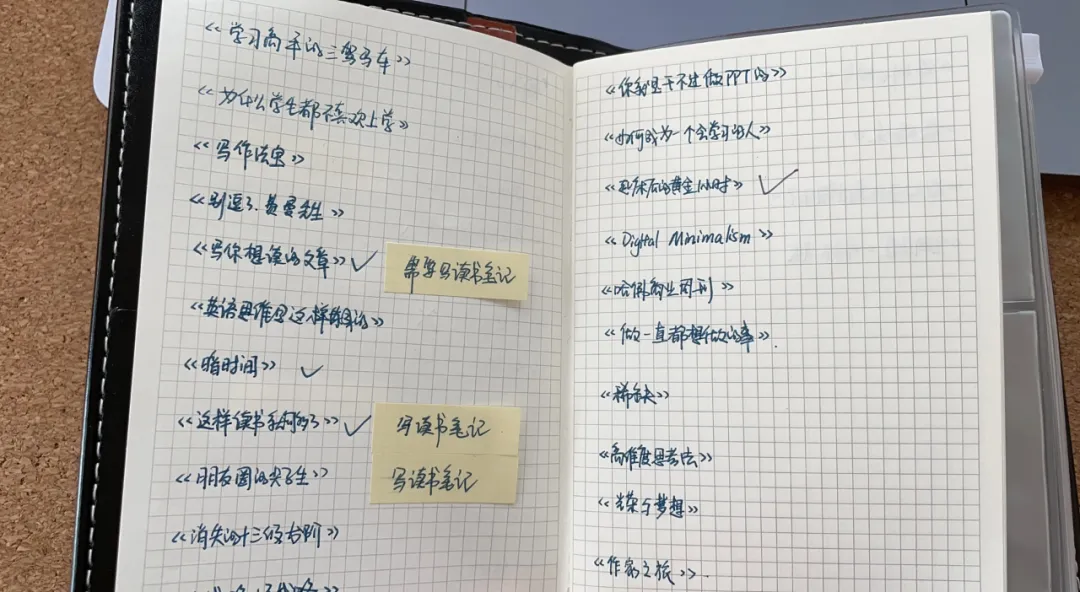 《学习高手的三驾马车》
《为什么学生都不喜欢上学》
《写作法宝》
《别逗了、费曼先生》
《写你想读的文章》✓
需要写读书笔记
《英语思维是这样练的》
《暗时间》✓
《这样读书就够了》✓
写读书笔记
写读书笔记
《朋友圈的尖子生》
《消失的十三级台阶》
《你我是干不过做PPT的》
《如何成为一个会学习的人》
《起床后的黄金1小时》✓
《Digital Minimalism》
《哈佛商业周刊》
《做一直都想做的事》.
《稀缺》
《高维度思考法》
《光荣与梦想》
《作家之旅》.